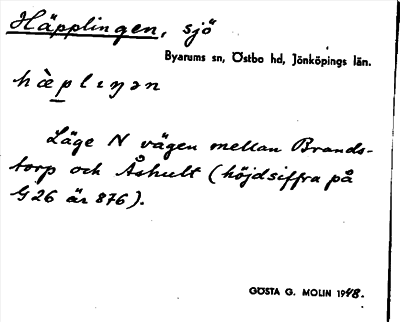 Häpplingen, sjö
Byarums sn, Östbo hd, Jönköpings län.
hὲplɩŋən
Läge N vägen mellan Brands-
torp och Åshult (höjdsiffra på
G 26 är 876).
GÖSTA G. MOLIN 1948.